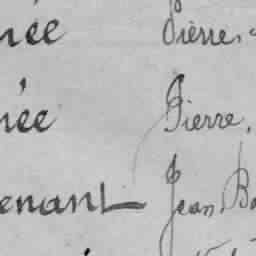 née Pierre,
née Pierre,
enant Jean Ba